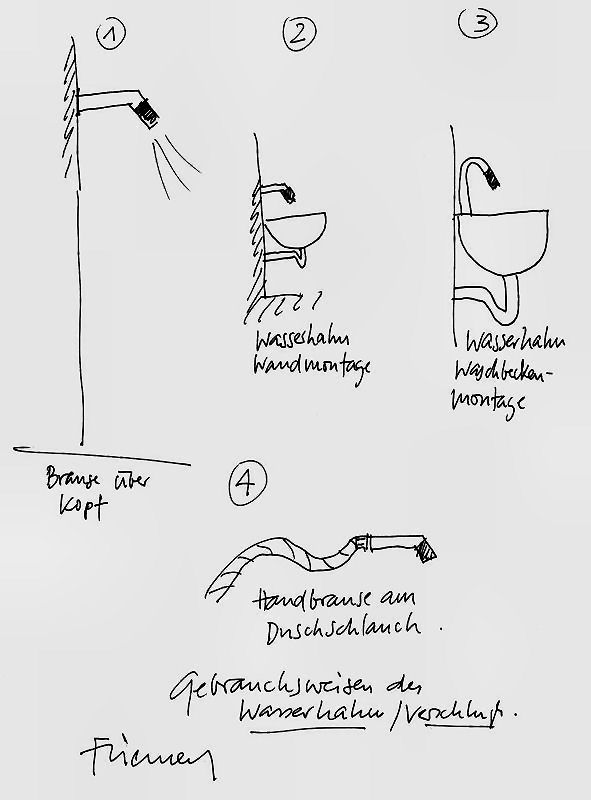 1
2
3
Wasserhahn
Wandmontage
Wasserhahn
Waschbecken-
montage
Brause über
Kopf
4
Handbrause am
Duschschlauch.
Gebrauchsweisen des
Wasserhahn /